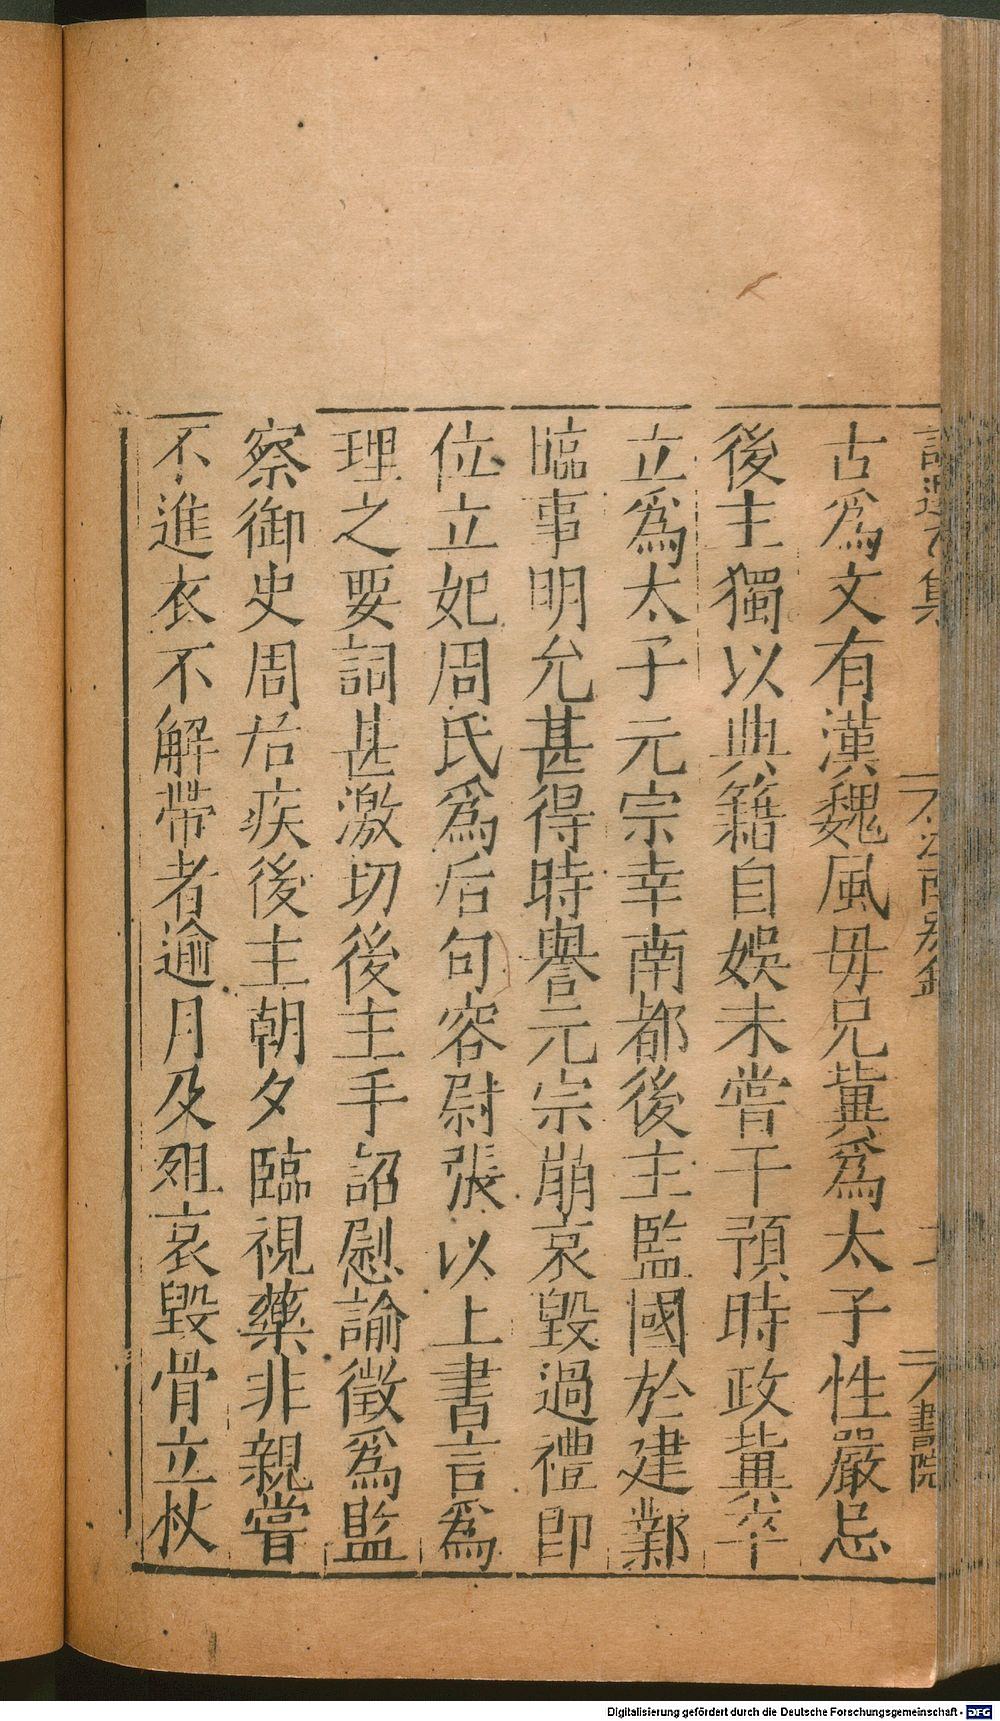 古爲文有漢魏風母兄冀爲太子性嚴忌
後主獨以典籍自娛未嘗干預時政冀卒
立爲太子元宗幸南都後主監國於建鄴
臨事明允甚得時譽元宗崩哀毀過禮即
位立妃周氏爲后句容尉張以上書言爲
理之要詞甚激切後主手詔慰諭徵爲監
察御史周后疾後主朝夕臨視藥非親嘗
不進衣不解帶者逾月及殂哀毀骨立杖
書院
Digitalisierung gefördert durch die Deutsche Forschungsgemeinschaft - DFG